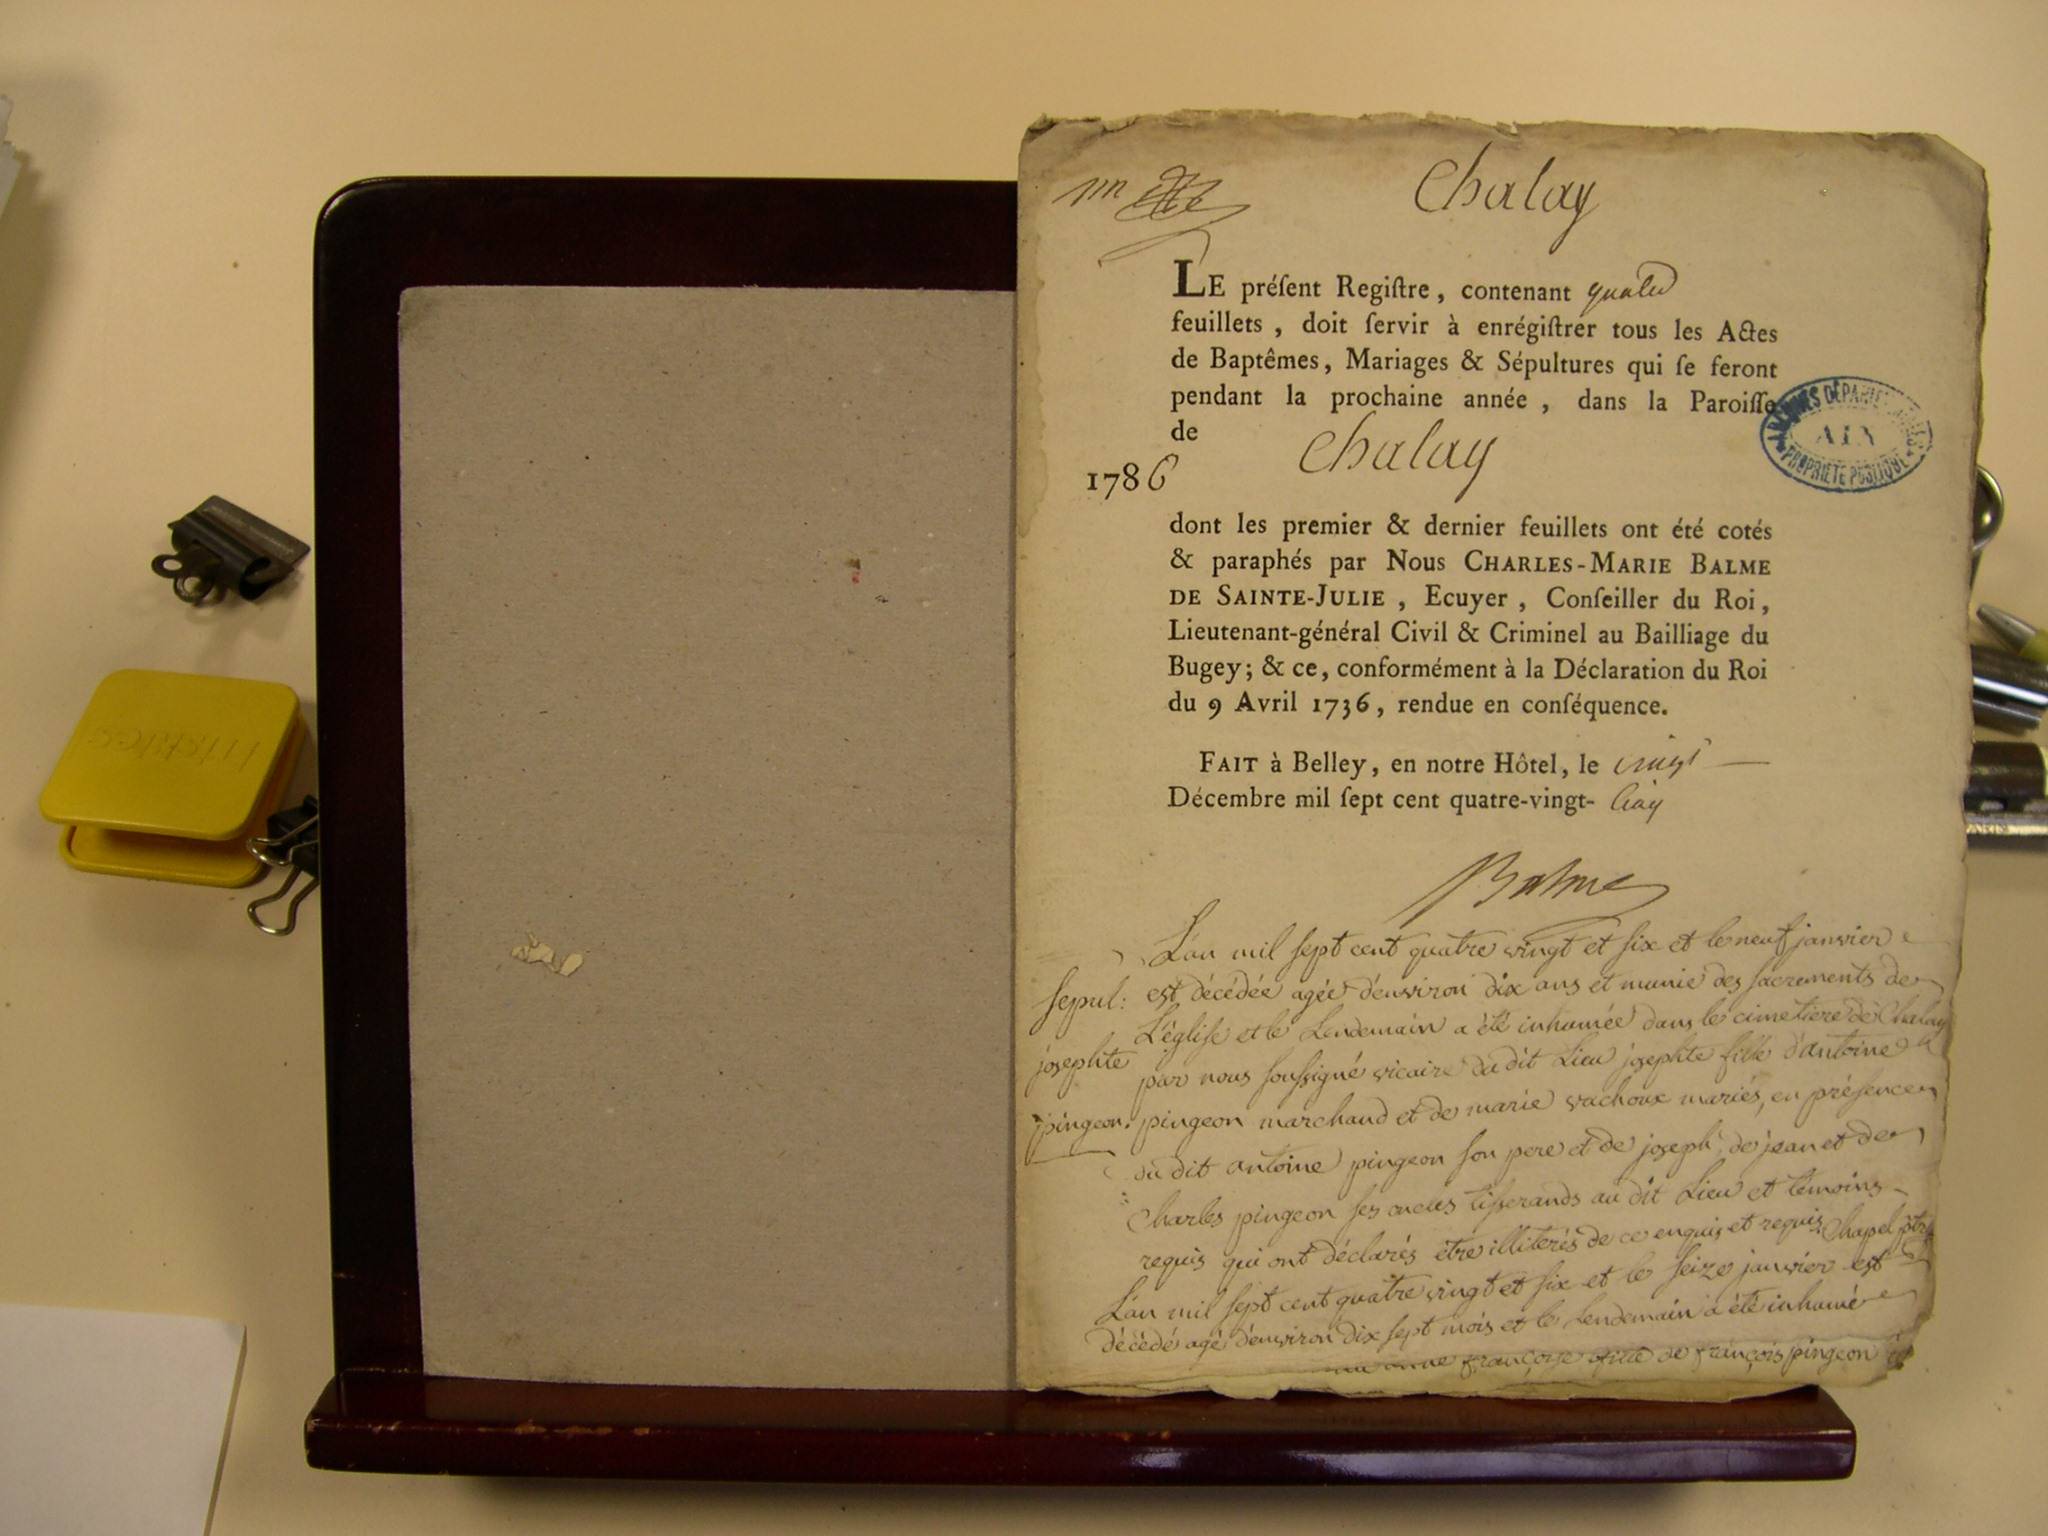 Chalay
LE préſent Regiſtre, contenant quatre
feuillets, doit ſervir à enrégiſtrer tous les Actes
de Baptêmes, Mariages & Sépultures qui ſe feront
pendant la prochaine année, dans la Paroiſſe
de Chalay
1786
ARCHIVES DÉPARTEMENTALES
AIN
PROPRIÉTÉ PUBLIQUE
dont les premier & dernier feuillets ont été cotés
& paraphés par Nous CHARLES-MARIE BALME
DE SAINTE-JULIE, Ecuyer, Conſeiller du Roi,
Lieutenant-général Civil & Criminel au Bailliage du
Bugey; & ce, conformément à la Déclaration du Roi
du 9 Avril 1736, rendue en conſéquence.
FAIT à Belley, en notre Hôtel, le vingt
Décembre mil ſept cent quatre-vingt- cinq
Balme
sepul:
josephte
pingeon.
L'an mil sept cent quatre vingt et six et le neuf janvier
est décédée agée d'environ dix ans et munie des sacrements de
L'église et le Lendemain a été inhumée dans le cimetiere de Chalay
par nous soussigné vicaire du dit Lieu josephte fille d'antoine
pingeon marchand et de marie vachoux mariés, en présence
du dit antoine pingeon son pere et de joseph, de jean et de
Charles pingeon ses oncles tisserands au dit Lieu et témoins
requis qui ont déclarés être illiterés de ce enquis et requis Chapel
L'an mil sept cent quatre vingt et six et le seize janvier est
décédé agé d'environ dix sept mois et le Lendemain a été inhumé
anne françoise fille de françois pingeon